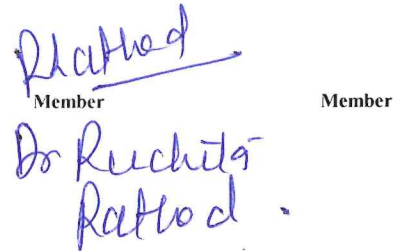 Rhathod
Member Member
Dr Ruchita
Rathod.